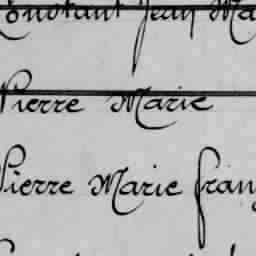 Constant Jean Ma
Pierre Marie
Pierre Marie Franç